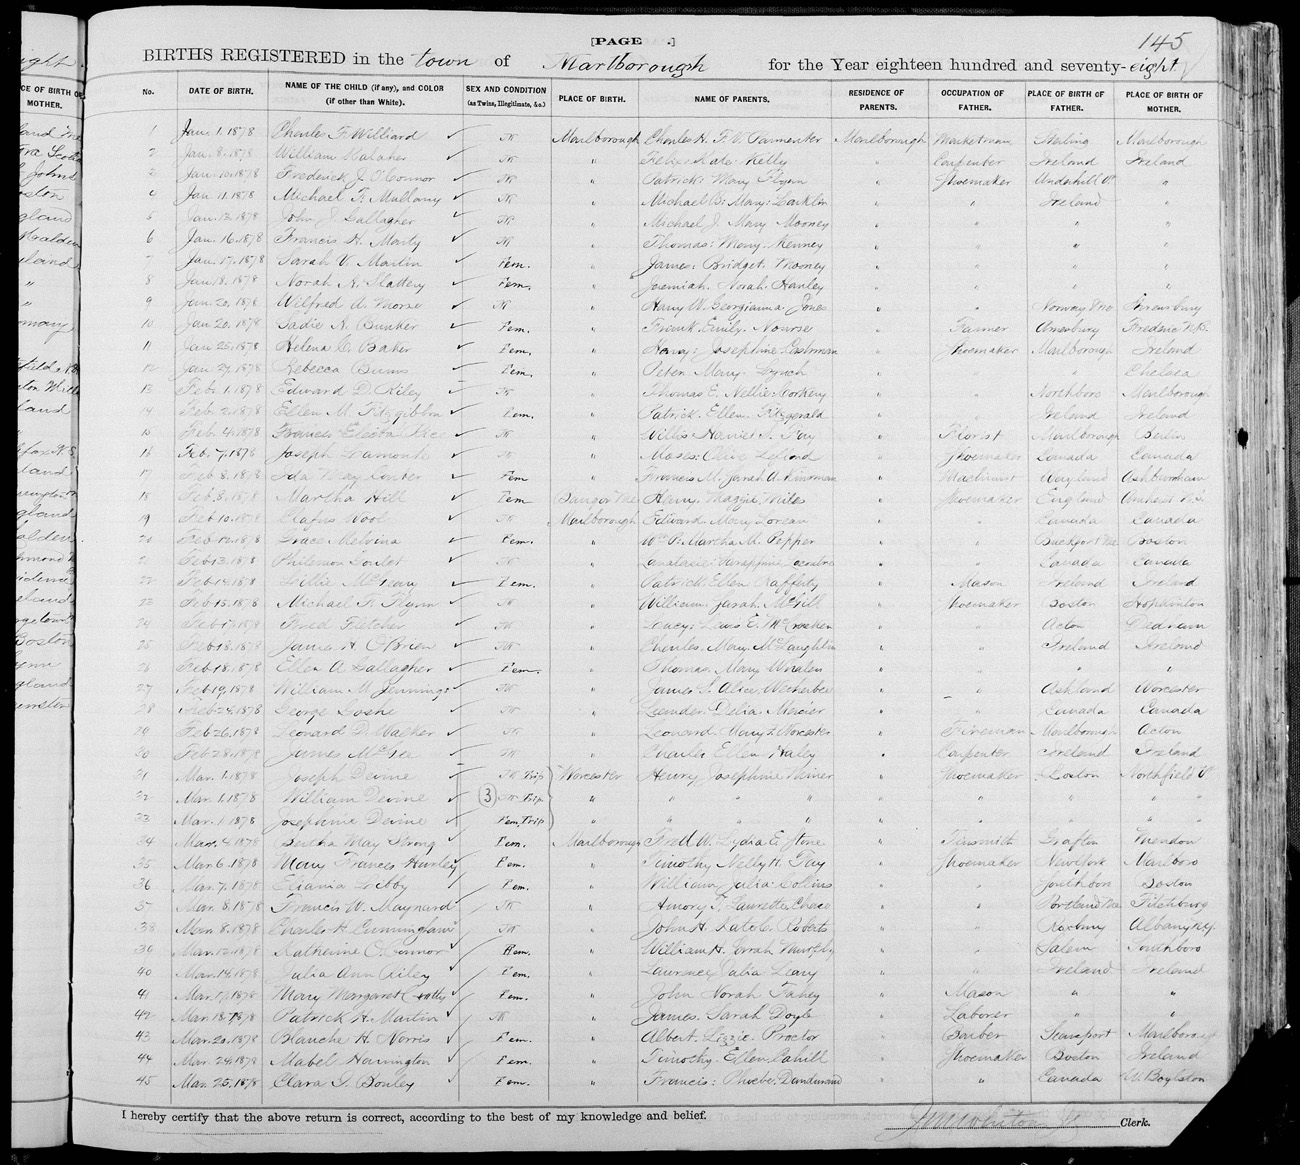 [PAGE .]
145
BIRTHS REGISTERED in the town of Marlborough for the Year eighteen hundred and seventy-eight
No. DATE OF BIRTH. NAME OF THE CHILD (if any), and COLOR (if other than White). SEX AND CONDITION (as Twins, Illegitimate, &c.) PLACE OF BIRTH. NAME OF PARENTS. RESIDENCE OF PARENTS. OCCUPATION OF FATHER. PLACE OF BIRTH OF FATHER. PLACE OF BIRTH OF MOTHER.
1 Jan. 1. 1878 Charles F. Williard M Marlborough Charles H. F. V. Parmenter Marlborough Marketman Sterling Marlborough
2 Jan. 8. 1878 William Kalaher M " Felix: Kate: Kelly " Carpenter Ireland Ireland
3 Jan. 10. 1878 Frederick J. O'Connor M " Patrick: Mary Flynn " Shoemaker Underhill Vt. "
4 Jan. 11. 1878 Michael F. Mullany M " Michael B: Mary: Larklin " " Ireland "
5 Jan. 12. 1878 John J. Gallagher M " Michael J. Mary Mooney " " " "
6 Jan. 16. 1878 Francis H. Marty M " Thomas: Mary. Kenney " " " "
7 Jan. 17. 1878 Sarah V. Martin Fem. " James: Bridget. Mooney " " " "
8 Jan. 18. 1878 Norah A. Slattery Fem. " Jeremiah. Norah. Hanley " " " "
9 Jan. 20. 1878 Wilfred A. Morse M " Harry W. Georgianna Jones " " Norway Me Shrewsbury
10 Jan. 20. 1878 Sadie A. Bunker Fem. " Frank. Emily. Nourse " Farmer Amesbury Frederic N.B.
11 Jan. 25. 1878 Helena C. Baker Fem. " Henry: Josephine Eastman " Shoemaker Marlborough Ireland
12 Jan. 27. 1878 Rebecca Burns Fem. " Peter. Mary. Lynch " " " Chelsea
13 Feb. 1. 1878 Edward D. Riley M " Thomas E. Nellie Corkery " " Northboro Marlborough
14 Feb. 2. 1878 Ellen M. Fitzgibbon Fem. " Patrick. Ellen. Fitzgerald " " Ireland Ireland
15 Feb. 4. 1878 Francis Electa Rice M " Willis Harriet S. Fay " Florist Marlborough Berlin
16 Feb. 7. 1878 Joseph Lamonte M " Moses: Olive " Shoemaker Canada Canada
17 Feb. 8. 1878 Ida May Coulter Fem " Francis M. Sarah A. Kinsman " Machinist Wayland Ashburnham
18 Feb. 8. 1878 Martha Hill Fem Bangor Me Henry. Maggie Miles " Shoemaker England Amherst N.S.
19 Feb. 10. 1878 Wool M Marlborough Edward. Mary Loreau " " Canada Canada
20 Feb. 12. 1878 Grace Melvina Fem. " Wm. P. Martha M. Pepper " " Bucksport Me Boston
21 Feb. 13. 1878 Philemon Goulet M " " " Canada Canada
22 Feb. 14. 1878 Lillie McGeary Fem. " Patrick Ellen Rafferty " Mason Ireland Ireland
23 Feb. 15. 1878 Michael F. Flynn M " William. Sarah McGill " Shoemaker Boston Hopkinton
24 Feb. 17. 1878 Fred Fletcher M " Lacy: E. McCracken " " Acton Dedham
25 Feb. 18. 1878 James H. O'Brien M " Charles. Mary. McLaughlin " " Ireland Ireland
26 Feb. 18. 1878 Ellen A. Gallagher Fem. " Thomas. Mary Whalen " " " "
27 Feb. 19. 1878 William M. Jennings M " James S. Alice Wetherbee " " Ashland Worcester
28 Feb. 24. 1878 George Goshe M " Leander. Delia. Mercier " " Canada Canada
29 Feb. 26. 1878 Leonard D. Walker M " Leonard. Mary L. Worcester " Fireman Marlborough Acton
30 Feb. 28. 1878 James McGee M " Charles Ellen Haley " Carpenter Ireland Ireland
31 Mar. 1. 1878 Joseph Devine M Trip Worcester Henry Josephine Miner " Shoemaker Boston Northfield Vt.
32 Mar. 1. 1878 William Devine 3 M Trip " " " " " " " " "
33 Mar. 1. 1878 Josephine Devine Fem. Trip " " " " " " " " "
34 Mar. 4. 1878 Bertha May Strong Fem. Marlborough Fred W. Lydia E. Stone " Tinsmith Grafton Mendon
35 Mar. 6. 1878 Mary Frances Hurley Fem. " Timothy Nelly H. Fay " Shoemaker New York Marlboro
36 Mar. 7. 1878 Libby Fem. " William Julia Collins " " Southboro Boston
37 Mar. 8. 1878 Francis W. Maynard M " Amory T. Laurette Chace " " Portland Me Fitchburg
38 Mar. 8. 1878 Charles H. Cunningham M " John H. Kate C. Roberts " " Roxbury Albany N.Y.
39 Mar. 12. 1878 Katherine O'Connor Fem. " William H. Sarah Murphy " " Salem Southboro
40 Mar. 14. 1878 Julia Ann Riley Fem. " Lawrence Julia Leary " " Ireland Ireland
41 Mar. 17. 1878 Mary Margaret Crotty Fem. " John Norah Fahey " Mason " "
42 Mar. 18. 1878 Patrick H. Martin M " James. Sarah Doyle " Laborer " "
43 Mar. 20. 1878 Blanche H. Norris Fem. " Albert. Lizzie. Proctor " Barber Searsport Marlborough
44 Mar. 24. 1878 Mabel Harrington Fem. " Timothy. Ellen Cahill " Shoemaker Boston Ireland
45 Mar. 25. 1878 Clara I. Bonley Fem. " Francis: Phoebe. Dandurand " " Canada W. Boylston
I hereby certify that the above return is correct, according to the best of my knowledge and belief.
Clerk.